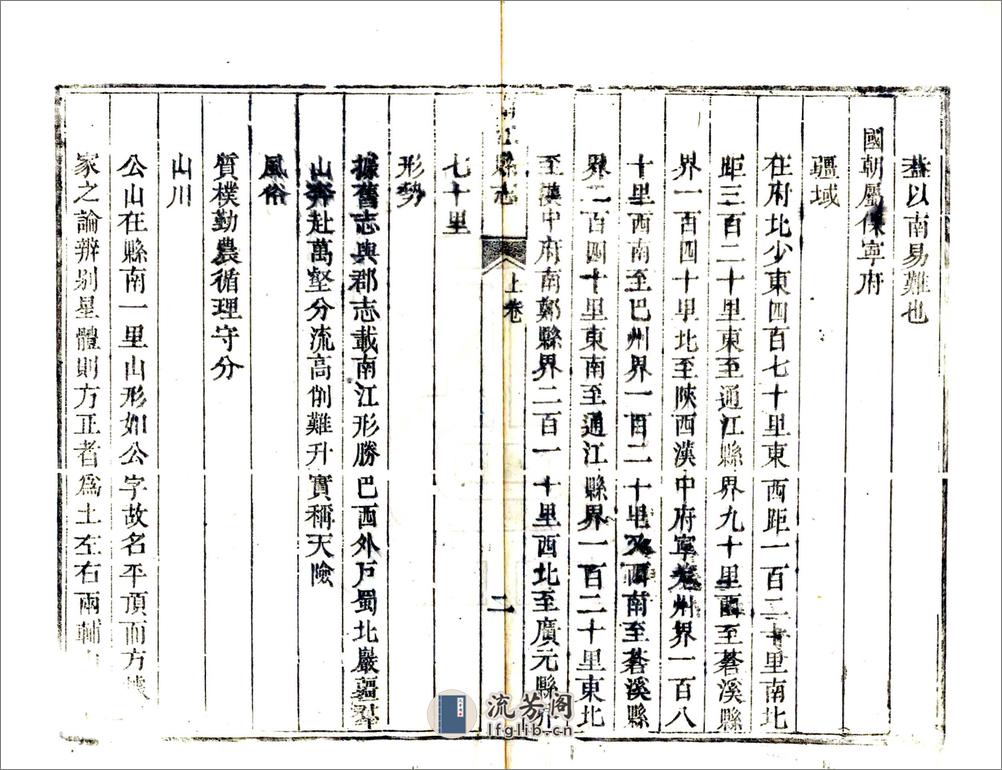 蓋以南易難也
國朝屬保寧府
疆域
在府北少東四百七十里東西距一百二十里南北
距三百二十里東至通江縣界九十里西至蒼溪縣
界一百四十里北至陝西漢中府寧羌州界一百八
十里西南至巴州界一百二十里又西南至蒼溪縣
界二百四十里東南至通江縣界一百二十里東北
至漢中府南鄭縣界二百一十里西北至廣元縣界
江縣志
上卷
二
七十里
形勢
據舊志與郡志載南江形勝巴西外戶蜀北嚴疆羣
山奔赴萬壑分流高削難升實稱天險
風俗
質樸勤農循理守分
山川
公山在縣南一里山形如公字故名平頂而方據
家之論辨别星體則方正者為土左右兩輔
流芳阁
lfglib.cn